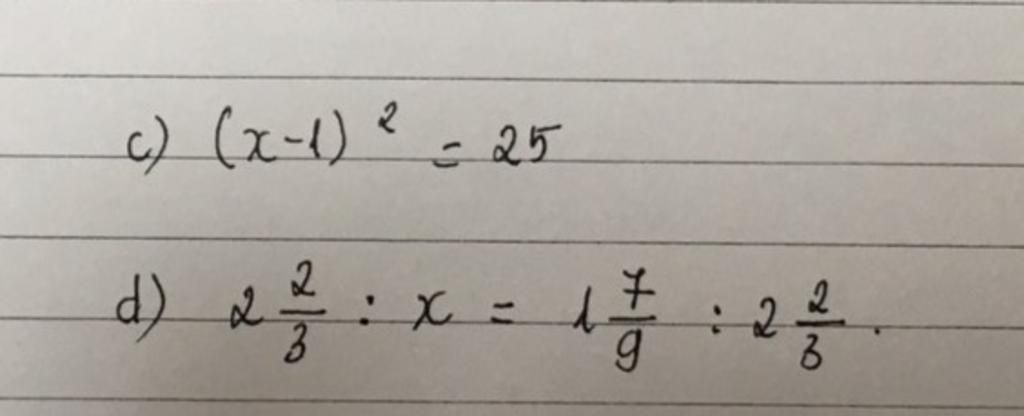 c) (x-1)² = 25
d) 2 2/3 : x = 1 7/9 : 2 2/3 .